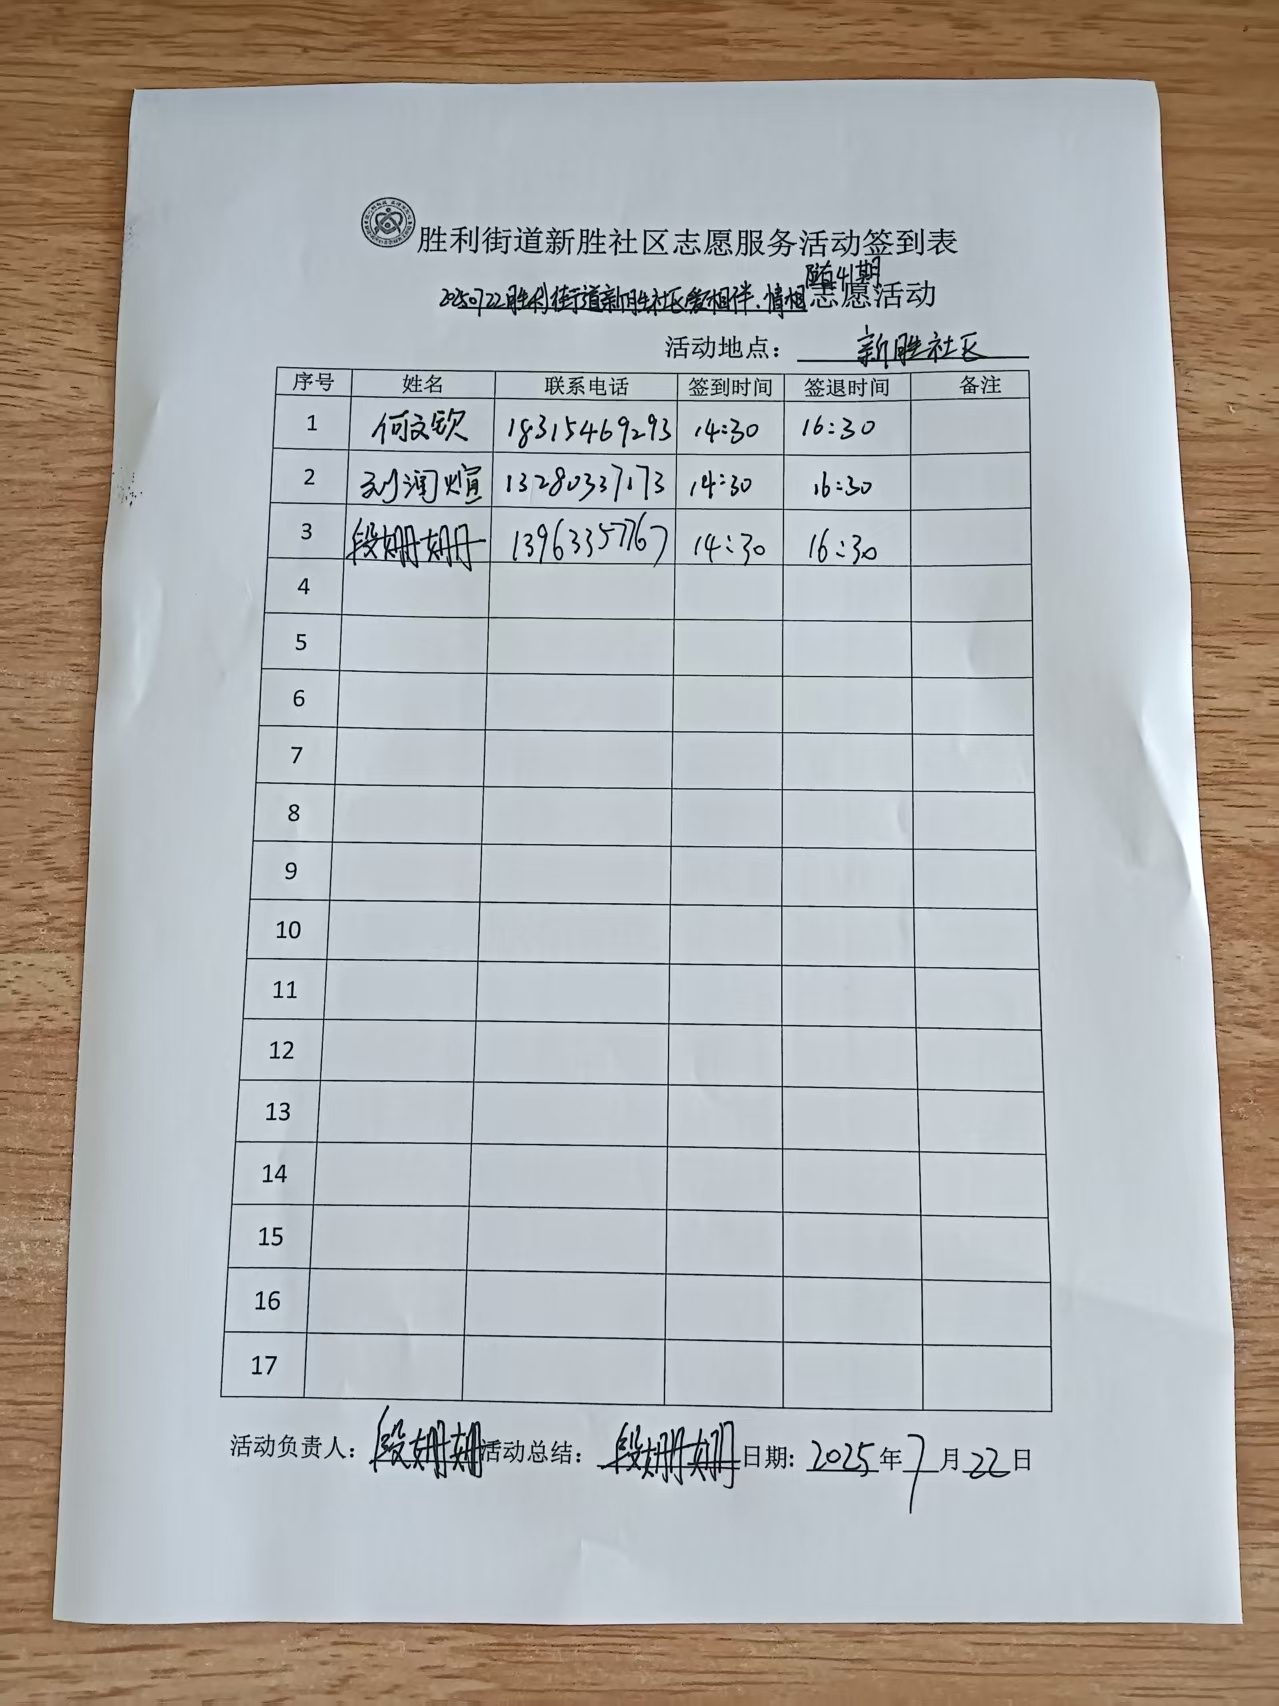 胜利街道新胜社区志愿服务活动签到表
20250722胜利街道新胜社区爱相伴、情相随41期志愿活动
活动地点： 新胜社区
序号 姓名 联系电话 签到时间 签退时间 备注
1 何文钦 18315469293 14:30 16:30
2 刘润煊 13280337173 14:30 16:30
3 段姗姗 13963357767 14:30 16:30
4
5
6
7
8
9
10
11
12
13
14
15
16
17
活动负责人：段姗姗 活动总结：段姗姗 日期: 2025年7月22日